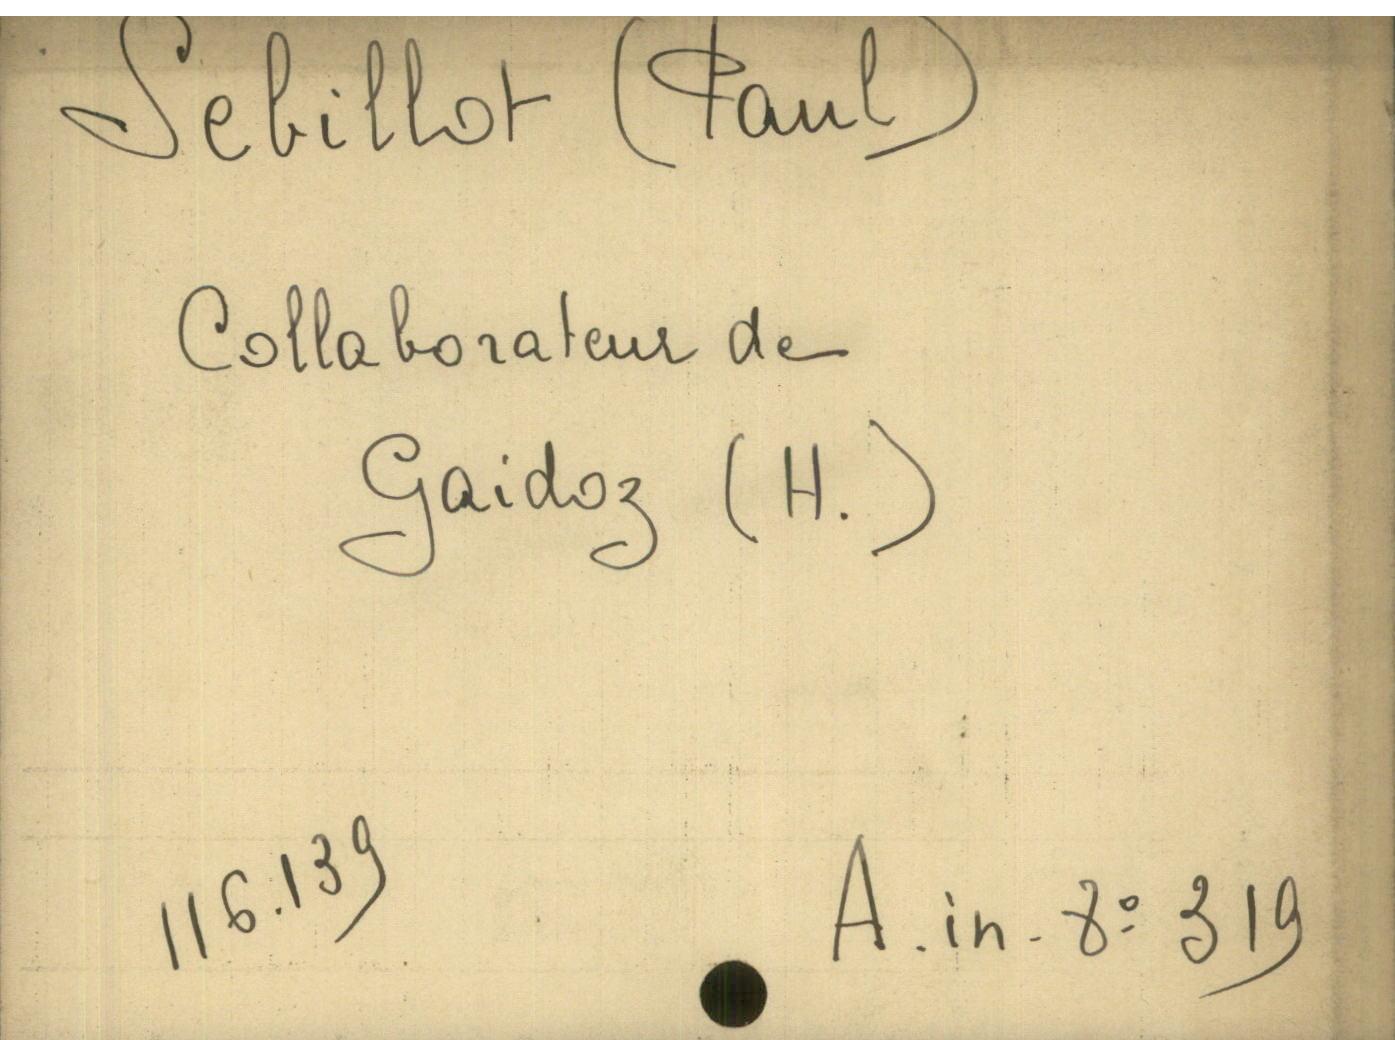 Sebillot (Paul)
Collaborateur de
Gaidoz (H.)
116.139
A. in-8º 319